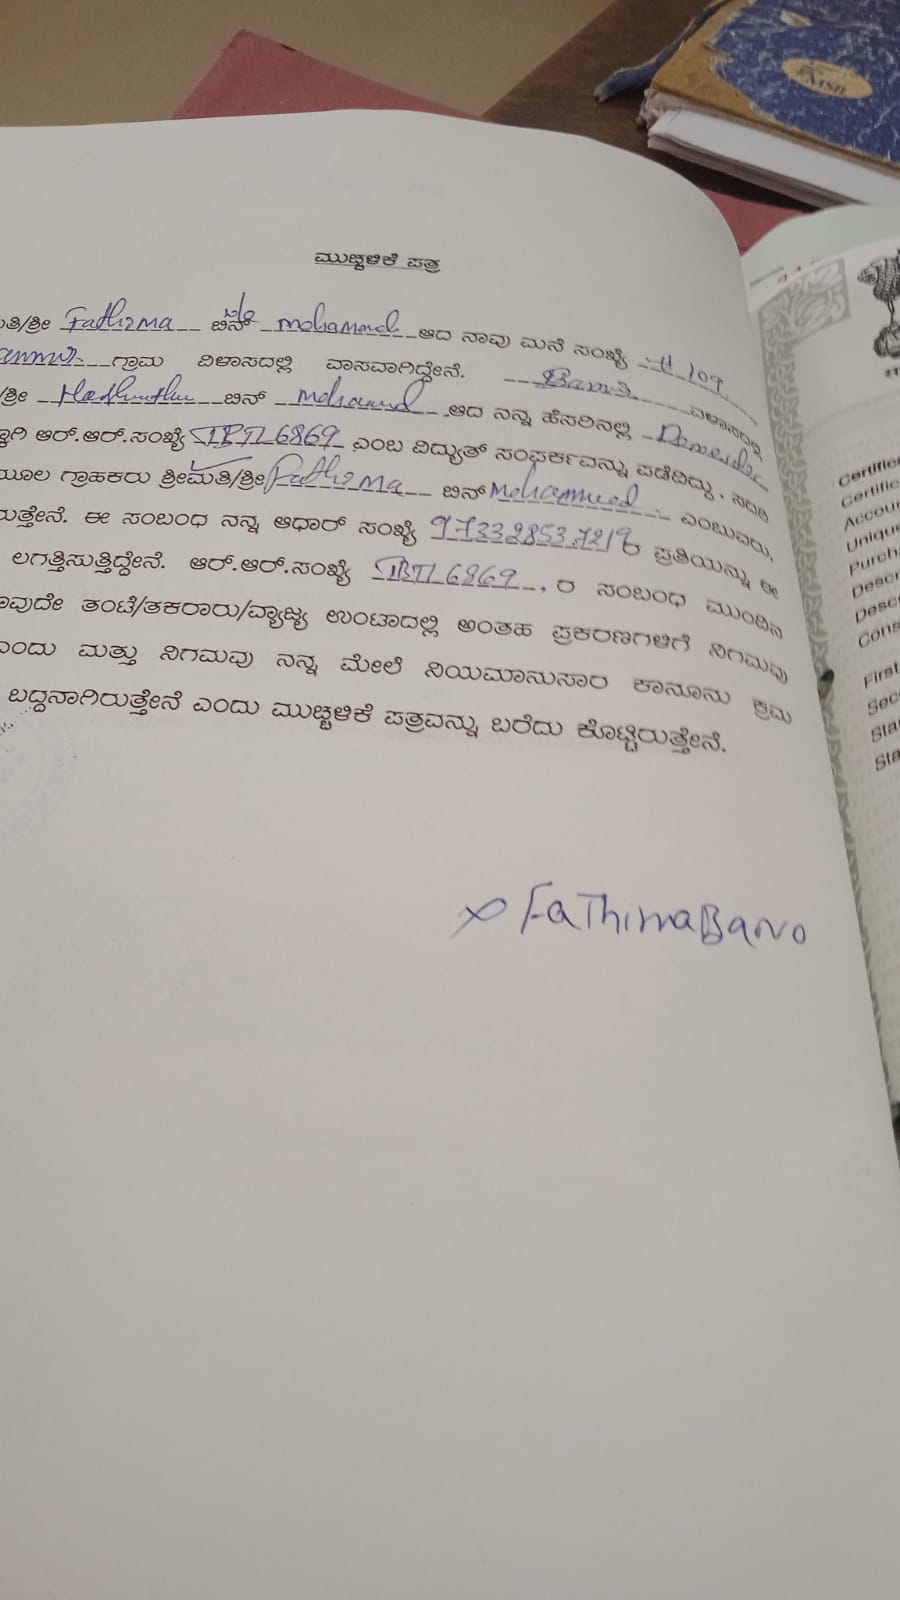 MSIL
ಮುಚ್ಚಳಿಕೆ ಪತ್ರ
ಮತಿ/ಶ್ರೀ Fathima ಬಿನ್ w/o mohammed ಆದ ನಾವು ಮನೆ ಸಂಖ್ಯೆ # 109
ಗ್ರಾಮ ವಿಳಾಸದಲ್ಲಿ ವಾಸವಾಗಿದ್ದೇನೆ. ವಿಳಾಸದಲ್ಲಿ
/ಶ್ರೀ ಬಿನ್ ಆದ ನನ್ನ ಹೆಸರಿನಲ್ಲಿ
ಆರ್.ಆರ್.ಸಂಖ್ಯೆ IBTL6869 ಎಂಬ ವಿದ್ಯುತ್ ಸಂಪರ್ಕವನ್ನು ಪಡೆದಿದ್ದು, ಸದರಿ
ಮೂಲ ಗ್ರಾಹಕರು ಶ್ರೀಮತಿ/ಶ್ರೀ Fathima ಬಿನ್ Mohammed ಎಂಬುವರು,
ರುತ್ತೇನೆ. ಈ ಸಂಬಂಧ ನನ್ನ ಆಧಾರ್ ಸಂಖ್ಯೆ ರ ಪ್ರತಿಯನ್ನು ಈ
ಲಗತ್ತಿಸುತ್ತಿದ್ದೇನೆ. ಆರ್.ಆರ್.ಸಂಖ್ಯೆ IBTL6869 , ರ ಸಂಬಂಧ ಮುಂದಿನ
ಾವುದೇ ತಂಟೆ/ತಕರಾರು/ವ್ಯಾಜ್ಯ ಉಂಟಾದಲ್ಲಿ ಅಂತಹ ಪ್ರಕರಣಗಳಿಗೆ ನಿಗಮವು
ಎಂದು ಮತ್ತು ನಿಗಮವು ನನ್ನ ಮೇಲೆ ನಿಯಮಾನುಸಾರ ಕಾನೂನು ಕ್ರಮ
ಬದ್ದನಾಗಿರುತ್ತೇನೆ ಎಂದು ಮುಚ್ಚಳಿಕೆ ಪತ್ರವನ್ನು ಬರೆದು ಕೊಟ್ಟಿರುತ್ತೇನೆ.
x FaThimaBaNo
Certific
Certific
Accou
Uniqu
Purch
Descr
Desc
Cons
First
Sec
Sta
Sta